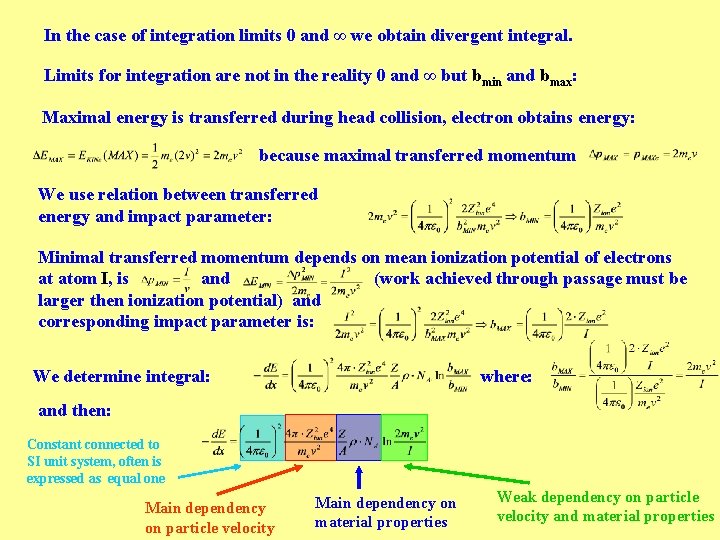 In the case of integration limits 0 and ∞ we obtain divergent integral.
Limits for integration are not in the reality 0 and ∞ but b_min and b_max:
Maximal energy is transferred during head collision, electron obtains energy:
ΔE_MAX = E_KINe(MAX) = \frac{1}{2} m_e (2v)^2 = 2m_e v^2 because maximal transferred momentum Δp_MAX = p_MAXe = 2m_e v
We use relation between transferred
energy and impact parameter: 2m_e v^2 = \left(\frac{1}{4πε_0}\right)^2 \frac{2Z_{ion}^2 e^4}{b_{MIN}^2 m_e v^2} ⇒ b_{MIN} = \left(\frac{1}{4πε_0}\right) \frac{Z_{ion} e^2}{m_e v^2}
Minimal transferred momentum depends on mean ionization potential of electrons
at atom I, is Δp_{MIN} = \frac{I}{v} and ΔE_{MIN} = \frac{Δp_{MIN}^2}{2m_e} = \frac{I^2}{2m_e v^2} (work achieved through passage must be
larger then ionization potential) and
corresponding impact parameter is: \frac{I^2}{2m_e v^2} = \left(\frac{1}{4πε_0}\right)^2 \frac{2Z_{ion}^2 e^4}{b_{MAX}^2 m_e v^2} ⇒ b_{MAX} = \left(\frac{1}{4πε_0}\right) \frac{2 · Z_{ion} e^2}{I}
We determine integral: -\frac{dE}{dx} = \left(\frac{1}{4πε_0}\right)^2 \frac{4π · Z_{ion}^2 e^4}{m_e v^2} \frac{Z}{A} ρ · N_A ln \frac{b_{MAX}}{b_{MIN}} where: \frac{b_{MAX}}{b_{MIN}} = \frac{\left(\frac{1}{4πε_0}\right) \frac{2 · Z_{ion} e^2}{I}}{\left(\frac{1}{4πε_0}\right) \frac{Z_{ion} e^2}{m_e v^2}} = \frac{2m_e v^2}{I}
and then:
-\frac{dE}{dx} = \left(\frac{1}{4πε_0}\right)^2 \frac{4π · Z_{ion}^2 e^4}{m_e v^2} \frac{Z}{A} ρ · N_A ln \frac{2m_e v^2}{I}
Constant connected to
SI unit system, often is
expressed as equal one
Main dependency
on particle velocity
Main dependency on
material properties
Weak dependency on particle
velocity and material properties